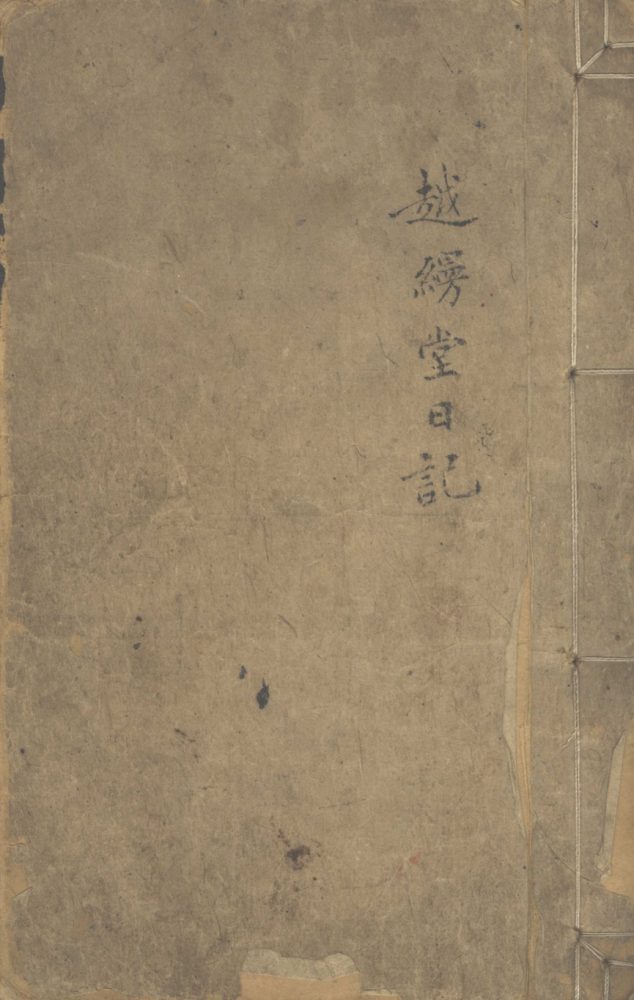 越縵堂日記